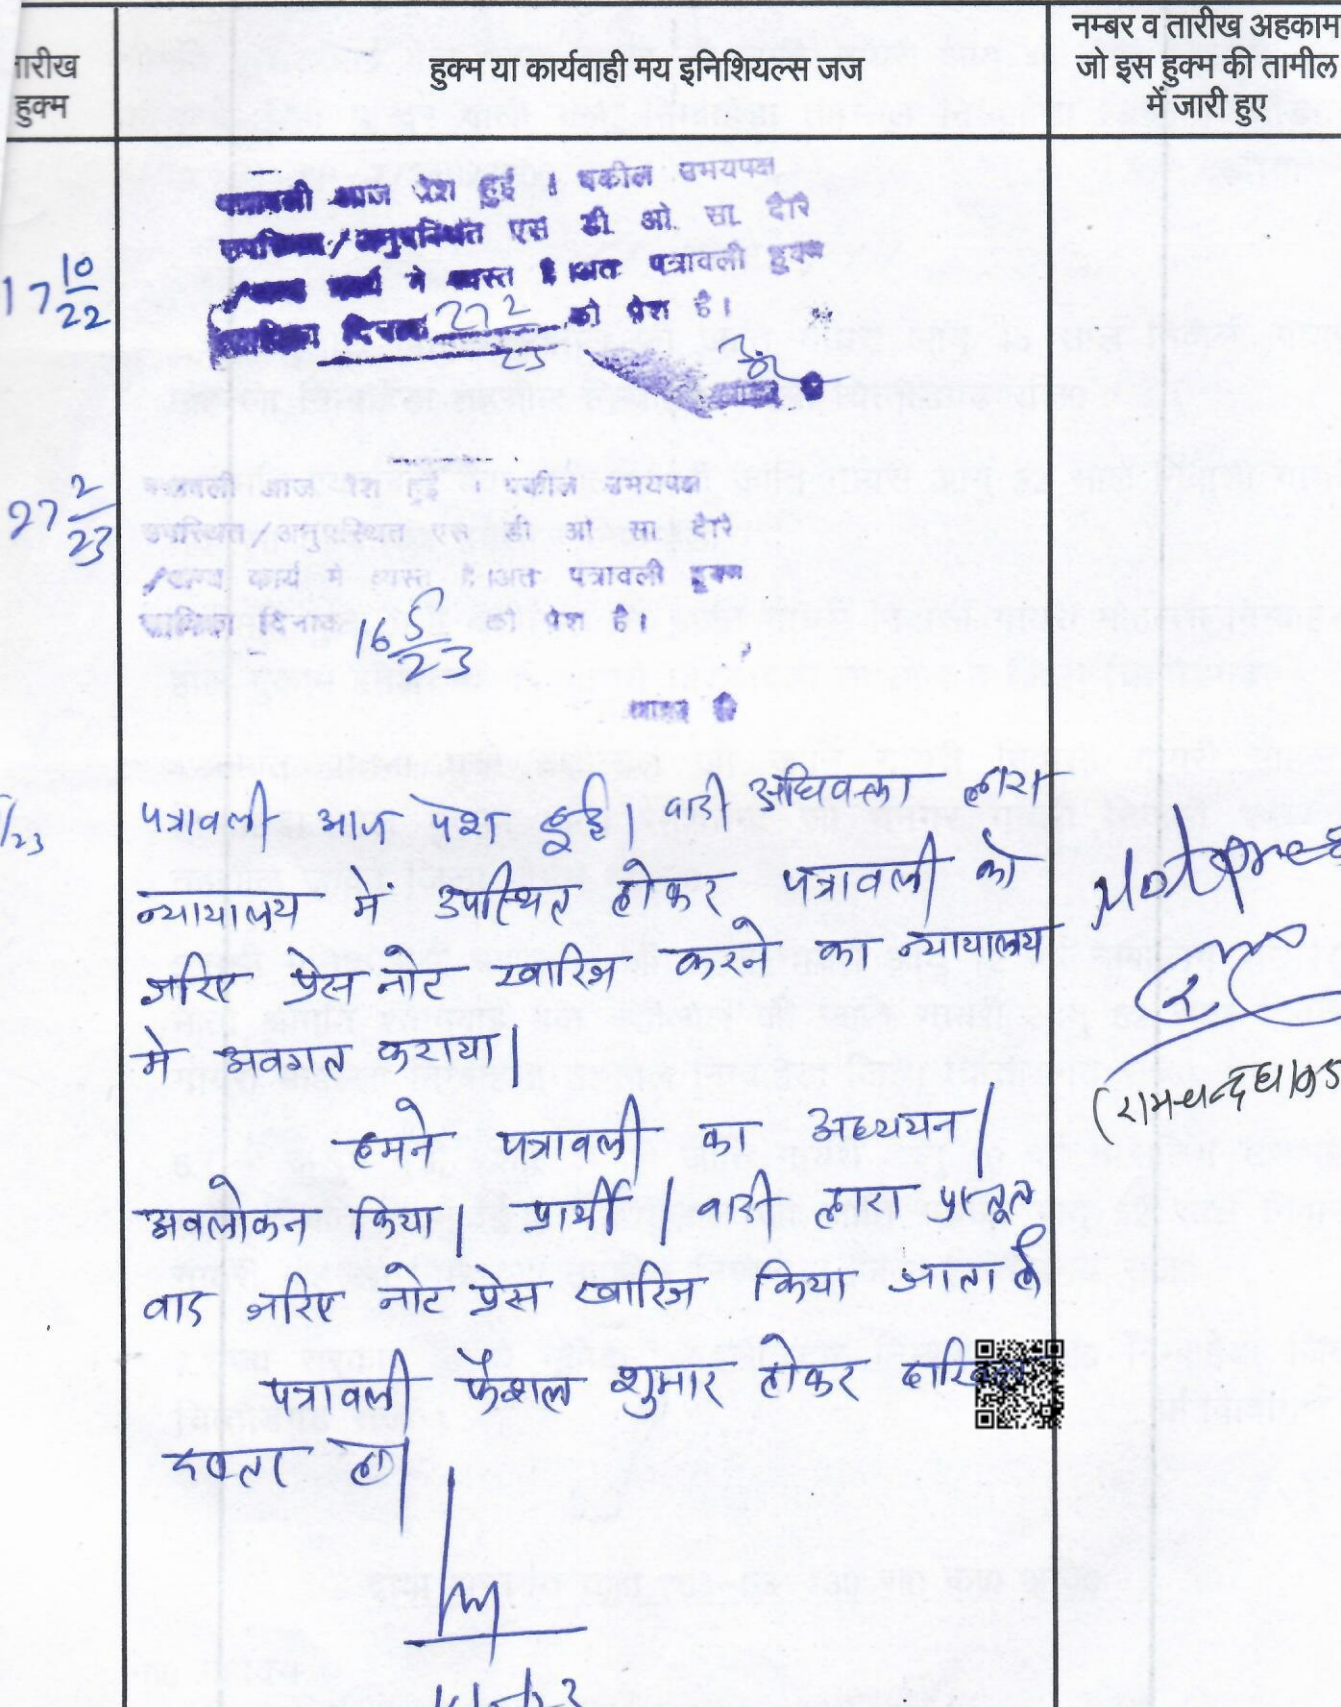 तारीख
हुक्म
हुक्म या कार्यवाही मय इनिशियल्स जज
नम्बर व तारीख अहकाम
जो इस हुक्म की तामील
में जारी हुए
17 10/22
पत्रावली आज पेश हुई । वकील उभयपक्ष
उपस्थित/अनुपस्थित एस डी. ओ. सा. दौरे
/अन्य कार्य मे व्यस्त है ।अत पत्रावली हुक्म
दिनांक 27 2/23 को पेश है।
27 2/23
पत्रावली आज पेश हुई वकील उभयपक्ष
उपस्थित/अनुपस्थित एस डी ओ सा दौरे
/अन्य कार्य मे व्यस्त है ।अत पत्रावली हुक्म
दिनांक 16 5/23 को पेश है।
/23
पत्रावली आज पेश हुई। वादी अधिवक्ता द्वारा
न्यायालय में उपस्थित होकर पत्रावली को
जरिए प्रेस नोट खारिज करने का न्यायालय
मे अवगत कराया।
हमने पत्रावली का अध्ययन।
अवलोकन किया। प्रार्थी / वादी द्वारा प्रस्तुत
वाद जरिए नोट प्रेस खारिज किया जाता है
पत्रावली फैशल शुमार होकर दाखिल
दफ्तर हो।
Not press
(रामचन्द्र धाकड